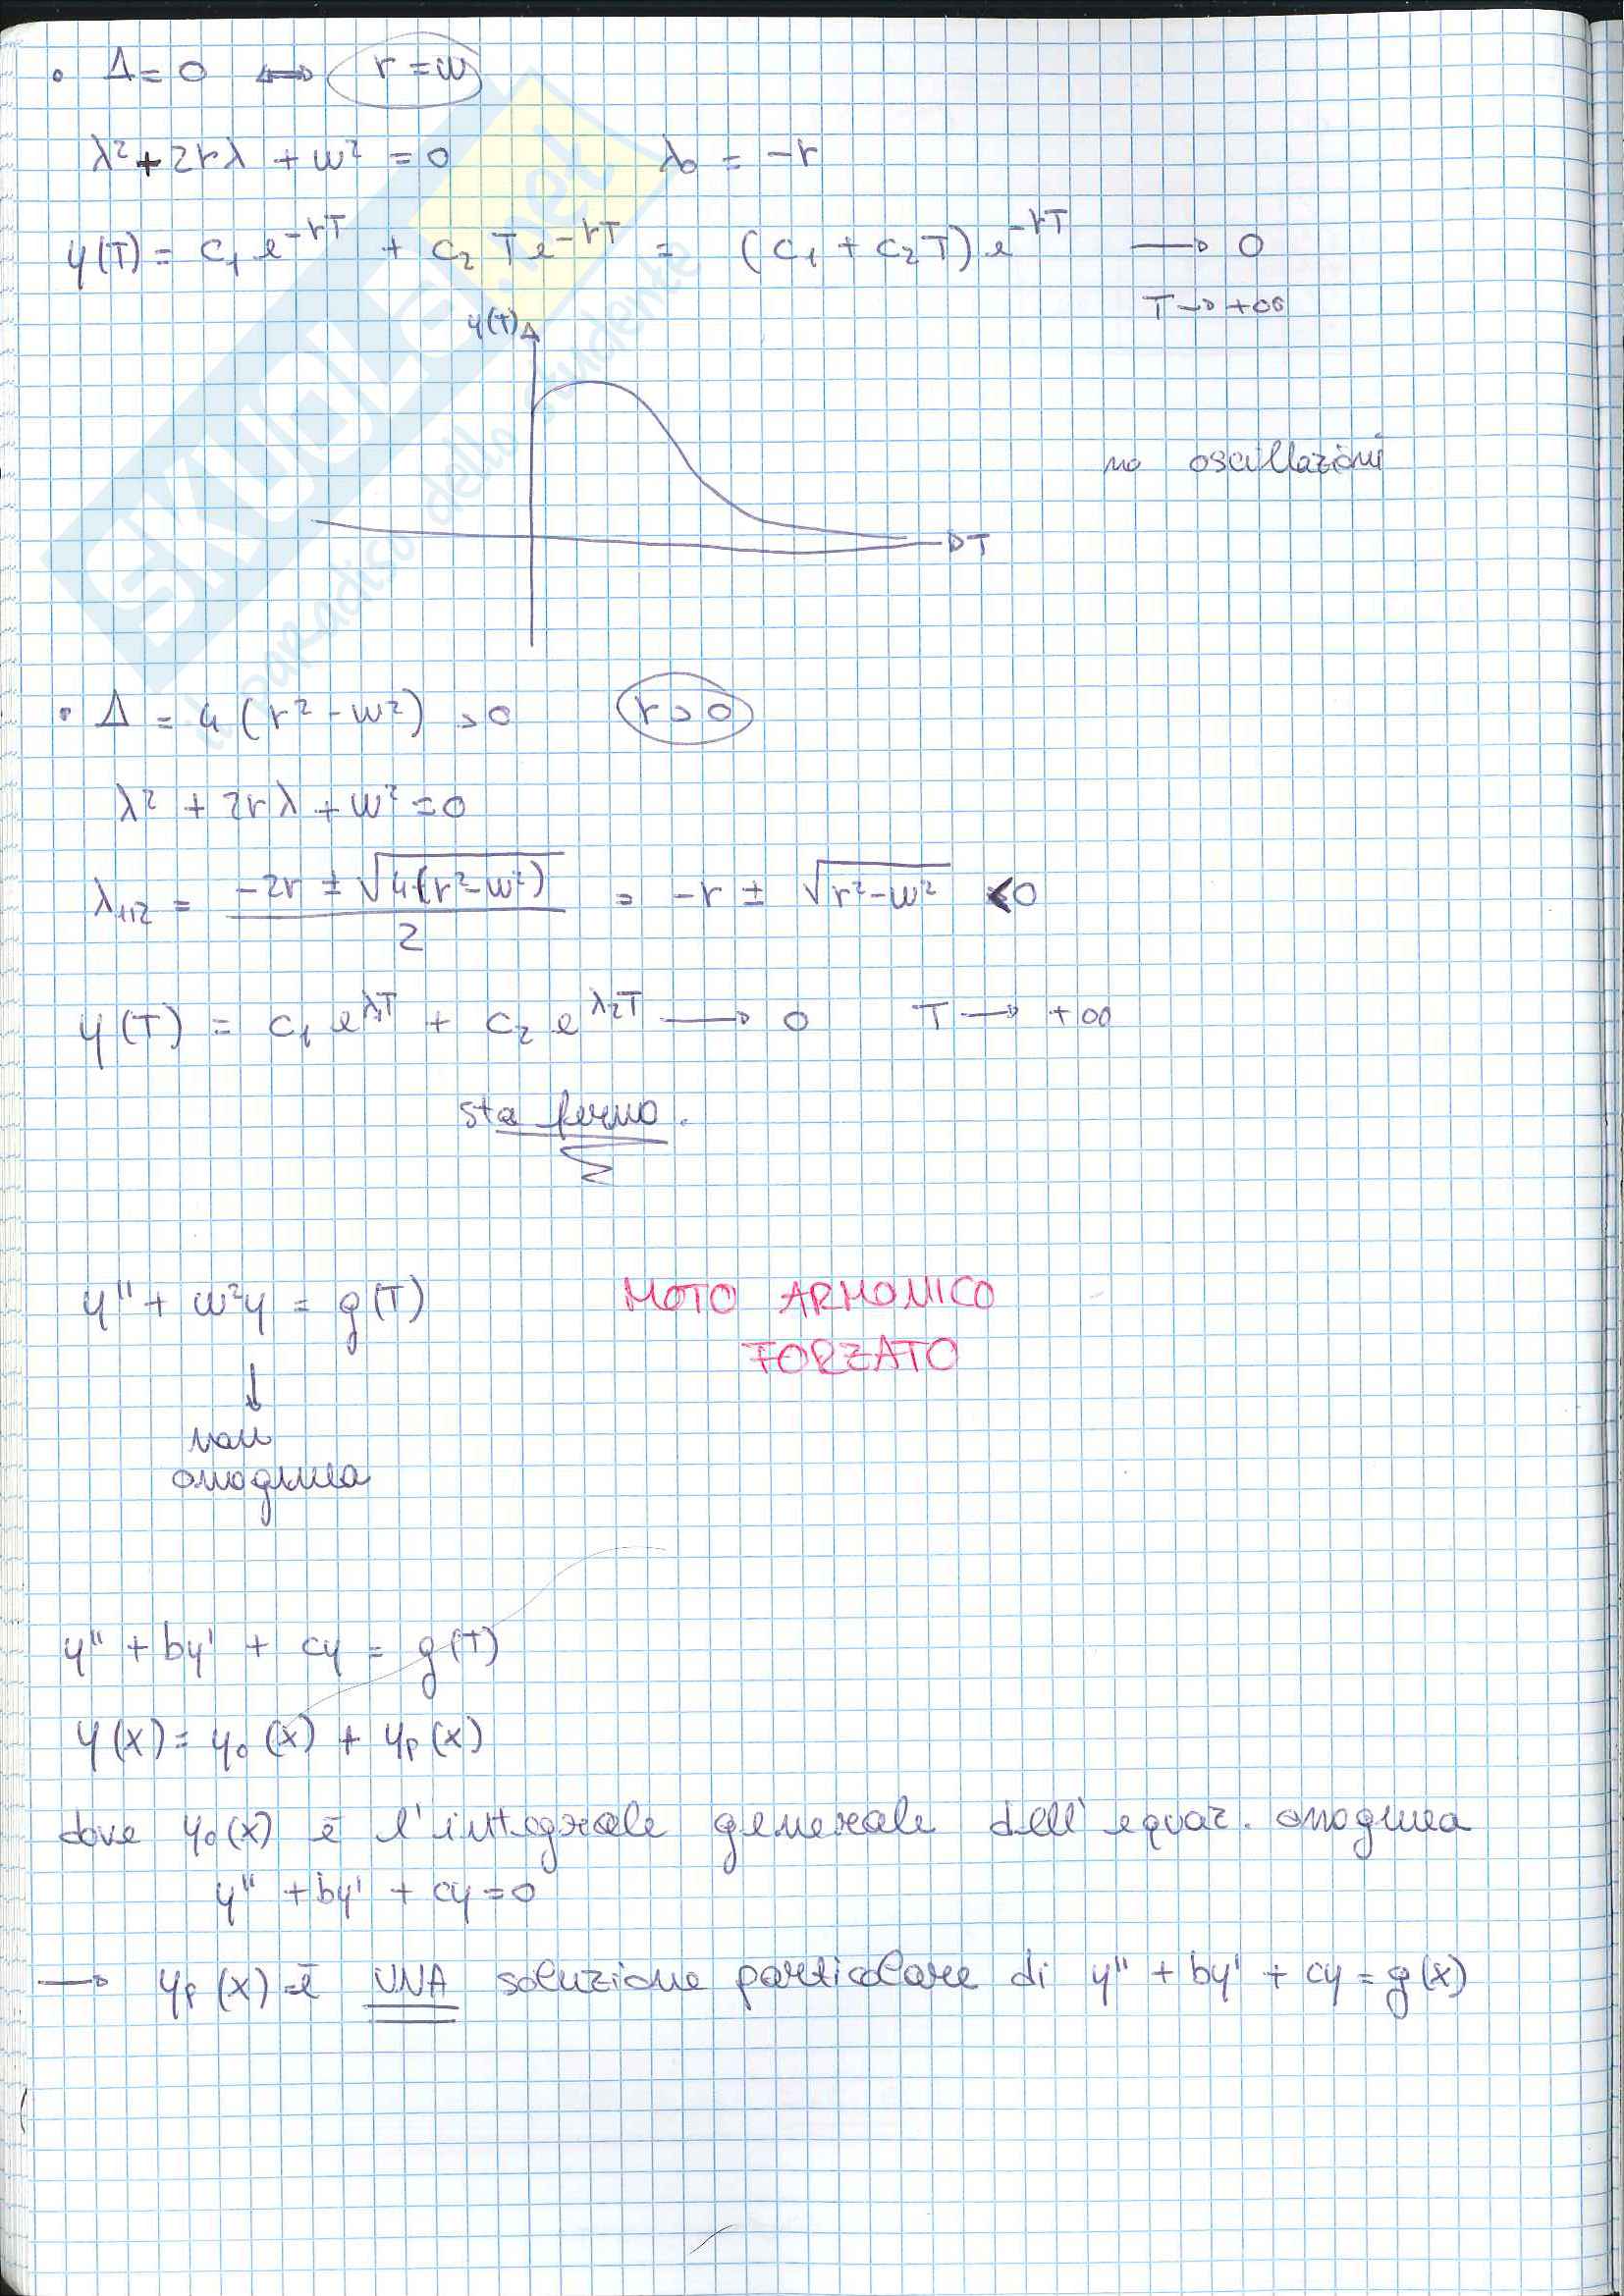 • Δ = 0 ⟺ r = w
λ² + 2rλ + w² = 0 λ₀ = -r
y(T) = c₁e^{-rT} + c₂Te^{-rT} = (c₁ + c₂T)e^{-rT} → 0
T → +∞
y(T)
no oscillazioni
T
• Δ = 4(r² - w²) > 0 r > 0
λ² + 2rλ + w² = 0
λ₁,₂ = (-2r ± √(4(r² - w²)))/2 = -r ± √(r² - w²) < 0
y(T) = c₁e^{λ₁T} + c₂e^{λ₂T} → 0 T → +∞
sta fermo.
y'' + w²y = g(T) MOTO ARMONICO
FORZATO
↓
non
omogenea
y'' + by' + cy = g(T)
y(x) = y₀(x) + yₚ(x)
dove y₀(x) è l'integrale generale dell'equaz. omogenea
y'' + by' + cy = 0
→ yₚ(x) è UNA soluzione particolare di y'' + by' + cy = g(x)
SKUOLA.net
il paradiso dello studente